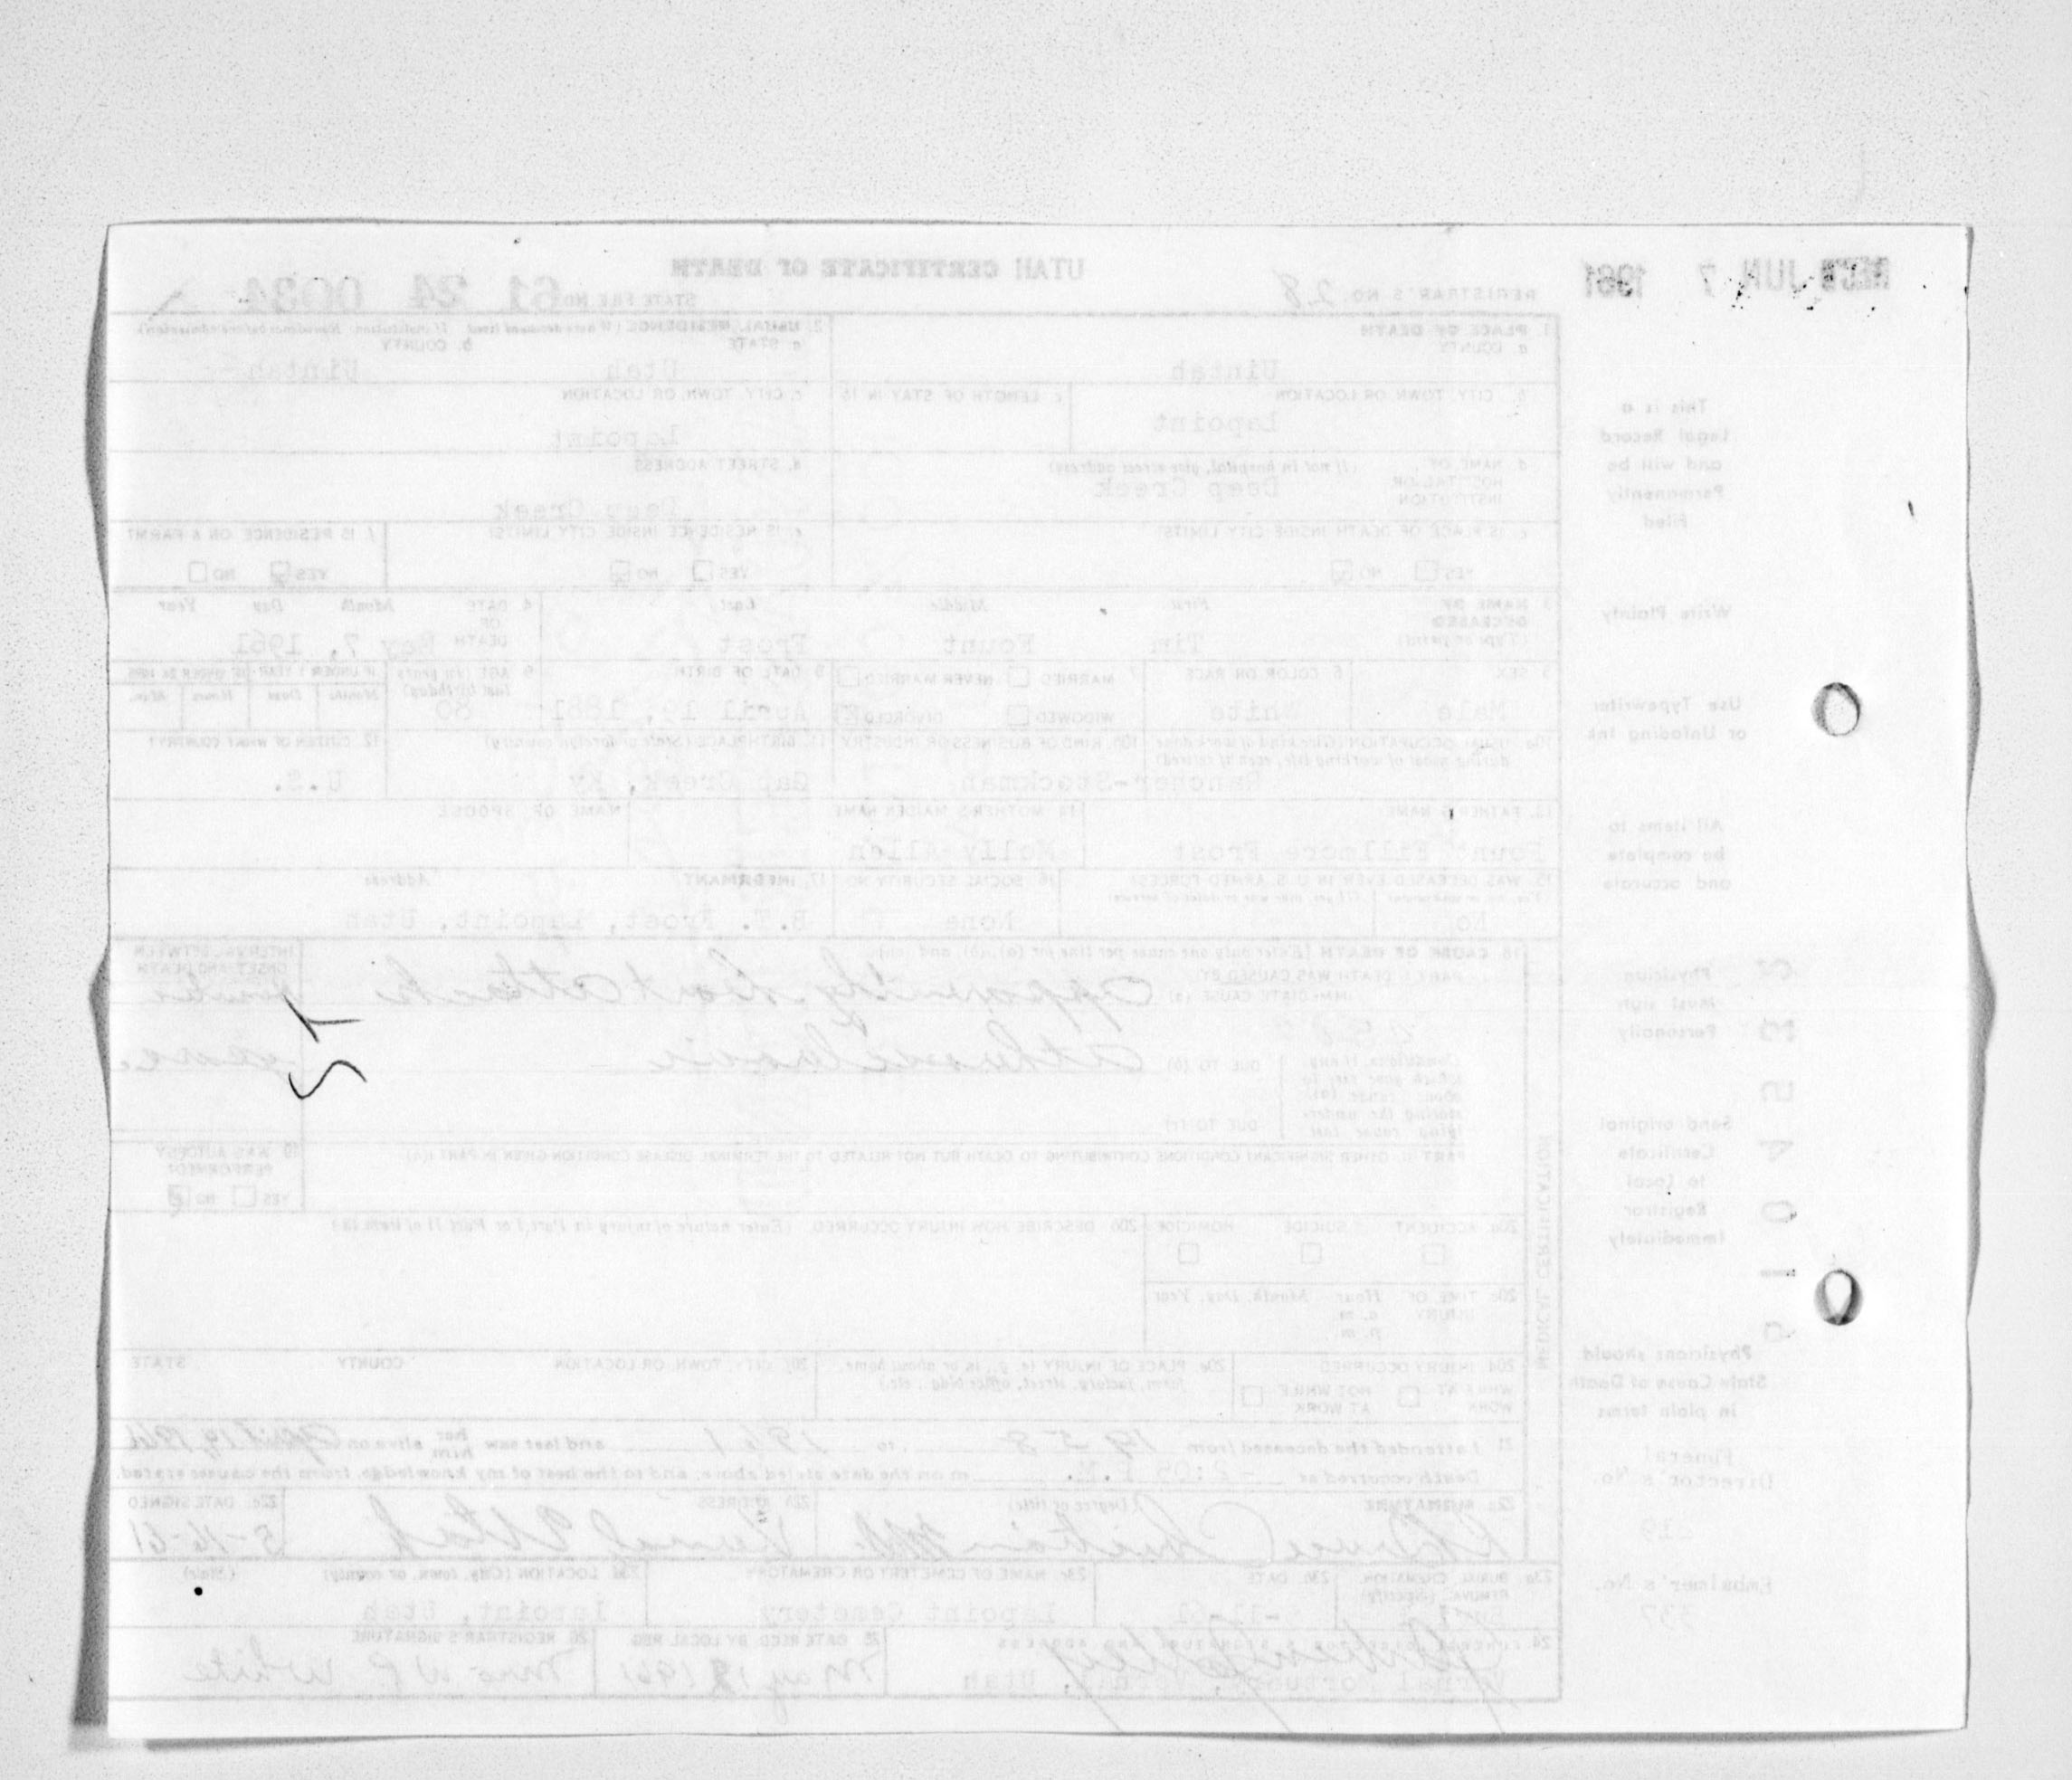 REC'D JUN 7 1961
UTAH CERTIFICATE OF DEATH
REGISTRAR'S NO. 28
STATE FILE NO. 61 24 0034
1. PLACE OF DEATH
a. COUNTY
Uintah
2. USUAL RESIDENCE (Where deceased lived. If institution: Residence before admission)
a. STATE b. COUNTY
Utah Uintah
b. CITY, TOWN, OR LOCATION
Lapoint
c. LENGTH OF STAY IN 1b
c. CITY, TOWN, OR LOCATION
Lapoint
d. NAME OF HOSPITAL OR INSTITUTION (If not in hospital, give street address)
Deep Creek
d. STREET ADDRESS
Deep Creek
e. IS PLACE OF DEATH INSIDE CITY LIMITS?
YES NO
e. IS RESIDENCE INSIDE CITY LIMITS?
YES NO
f. IS RESIDENCE ON A FARM?
YES NO
3. NAME OF DECEASED (Type or print)
First Middle Last
Tim Fount Frost
4. DATE OF DEATH Month Day Year
May 7, 1961
5. SEX
Male
6. COLOR OR RACE
White
7. MARRIED NEVER MARRIED
WIDOWED DIVORCED
8. DATE OF BIRTH
April 19, 1881
9. AGE (In years last birthday)
80
IF UNDER 1 YEAR IF UNDER 24 HRS.
Months Days Hours Min.
10a. USUAL OCCUPATION (Give kind of work done during most of working life, even if retired)
10b. KIND OF BUSINESS OR INDUSTRY
Rancher-Stockman
11. BIRTHPLACE (State or foreign country)
Gap Creek, Ky
12. CITIZEN OF WHAT COUNTRY?
U.S.
13. FATHER'S NAME
Fount Fillmore Frost
14. MOTHER'S MAIDEN NAME
Molly Allen
NAME OF SPOUSE
15. WAS DECEASED EVER IN U. S. ARMED FORCES?
No
16. SOCIAL SECURITY NO.
None
17. INFORMANT Address
B.T. Frost, Lapoint, Utah
MEDICAL CERTIFICATION
18. CAUSE OF DEATH [Enter only one cause per line for (a), (b), and (c)]
PART I. DEATH WAS CAUSED BY:
IMMEDIATE CAUSE (a) Apparently heart attack
INTERVAL BETWEEN ONSET AND DEATH
Conditions, if any, which gave rise to above cause (a), stating the underlying cause last
DUE TO (b)
DUE TO (c)
PART II. OTHER SIGNIFICANT CONDITIONS CONTRIBUTING TO DEATH BUT NOT RELATED TO THE TERMINAL DISEASE CONDITION GIVEN IN PART I(a)
19. WAS AUTOPSY PERFORMED?
YES NO
20a. ACCIDENT SUICIDE HOMICIDE
20b. DESCRIBE HOW INJURY OCCURRED. (Enter nature of injury in Part I or Part II of item 18.)
20c. TIME OF INJURY Hour Month, Day, Year
a. m.
p. m.
20d. INJURY OCCURRED
WHILE AT WORK NOT WHILE AT WORK
20e. PLACE OF INJURY (e. g., in or about home, farm, factory, street, office bldg., etc.)
20f. CITY, TOWN, OR LOCATION COUNTY STATE
21. I attended the deceased from 1958 to 1961 and last saw her him alive on April 19, 1961
Death occurred at 2:05 P.M. m on the date stated above, and to the best of my knowledge, from the causes stated.
22a. SIGNATURE (Degree or title)
22b. ADDRESS
Vernal Utah
22c. DATE SIGNED
5-16-61
23a. BURIAL, CREMATION, REMOVAL (Specify)
23b. DATE
-11-61
23c. NAME OF CEMETERY OR CREMATORY
Lapoint Cemetery
23d. LOCATION (City, town, or county) (State)
Lapoint, Utah
24. FUNERAL DIRECTOR'S SIGNATURE AND ADDRESS
Vernal Mortuary, Vernal, Utah
25. DATE RECD. BY LOCAL REG.
26. REGISTRAR'S SIGNATURE
Mrs W P. White
This is a
Legal Record
and will be
Permanently
Filed
Write Plainly
Use Typewriter
or Unfading Ink
All items to
be complete
and accurate
Physician
Must sign
Personally
Send original
Certificate
to Local
Registrar
Immediately
Physicians should
State Cause of Death
in plain terms
Funeral
Director's No.
Embalmer's No.
337